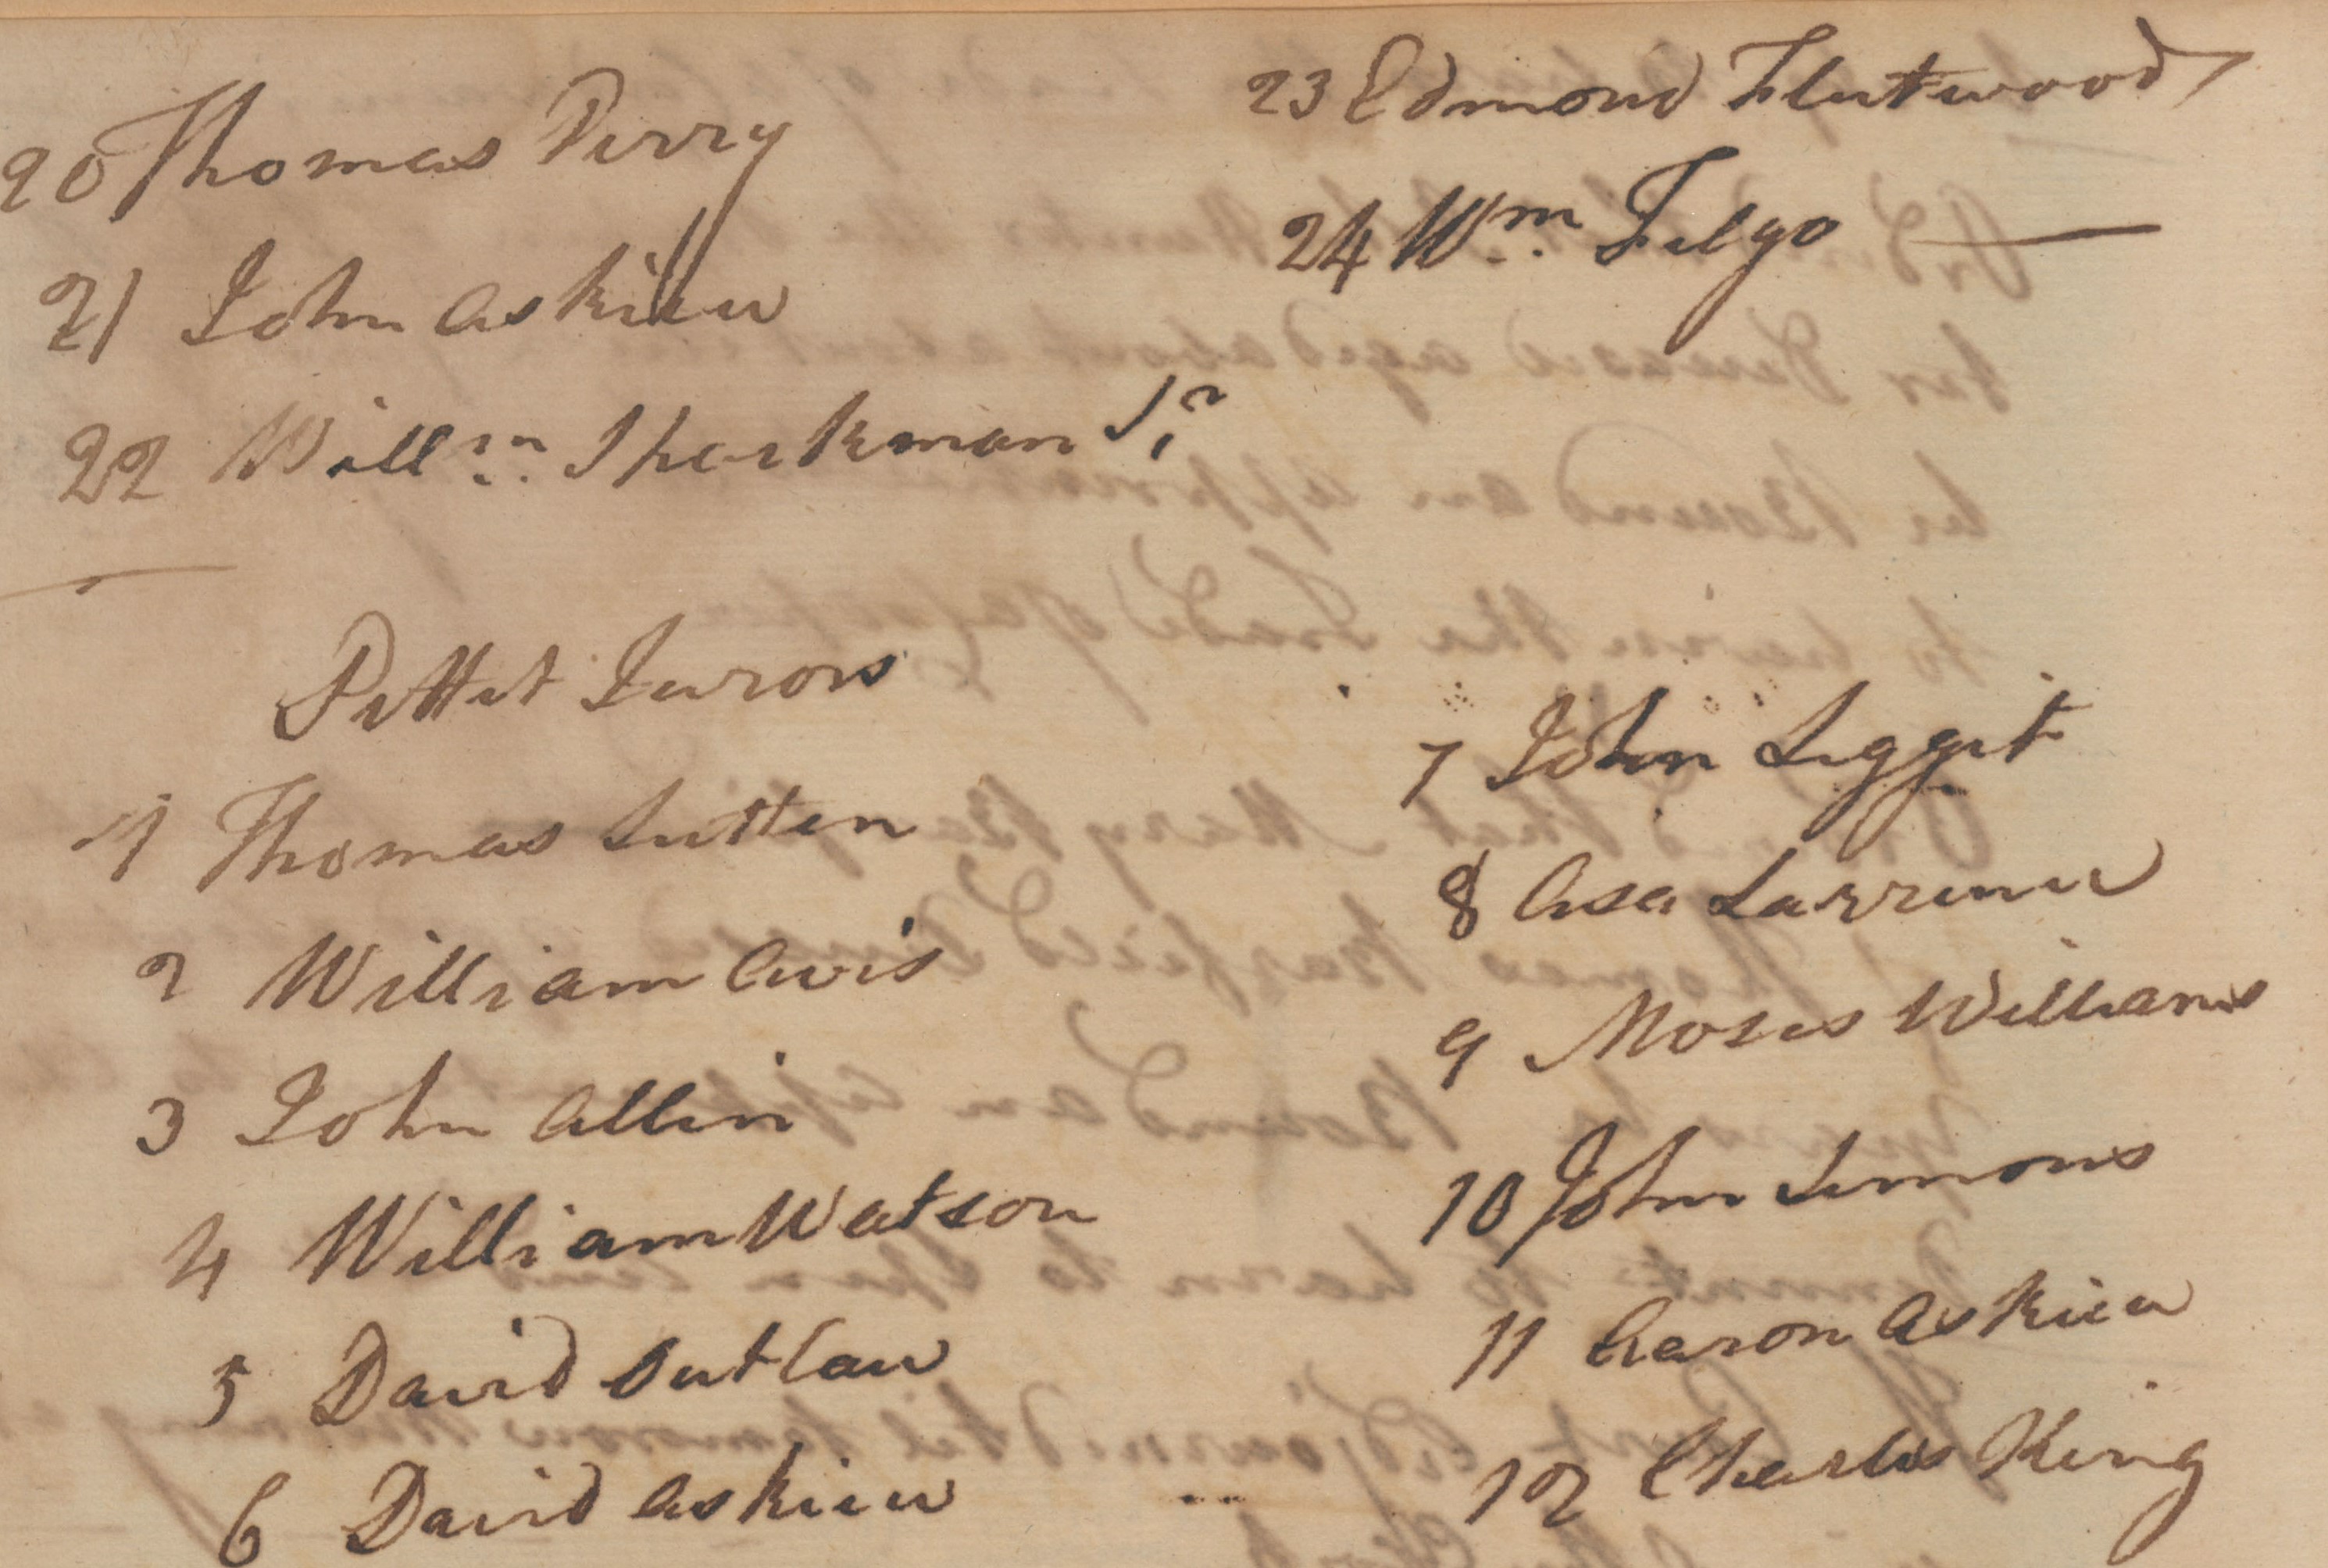 20 Thomas Perry
21 John Askiew
22 Willm Sharkman Sr
23 Edmond Fleetwood
24 Wm Felgo
Pettet Jurors
1 Thomas Sutten
2 William Avis
3 John Allen
4 William Watson
5 David Outlaw
6 David Askiew
7 John Legget
8 Asa Larrence
9 Moses Williams
10 John Simons
11 Aaron Askiew
12 Charles King